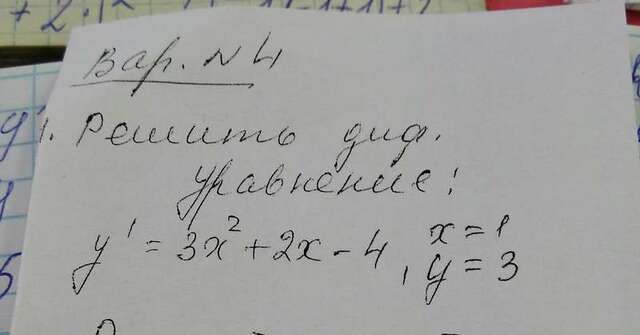 Вар. N 4
1. Решить диф.
уравнение:
y' = 3x² + 2x - 4, x = 1
y = 3